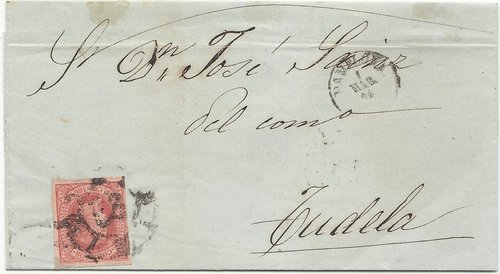 Sr Dn José Sainz
del comº
Tudela
1
MAR